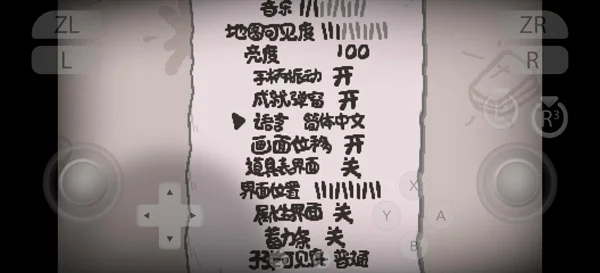 音乐
地图可见度
亮度 100
手柄振动 开
成就弹窗 开
语言 简体中文
画面位移 开
道具表界面 关
界面位置
属性界面 关
蓄力条 关
可见度 普通
ZL
L
ZR
R
L
R3
X
Y
A
B